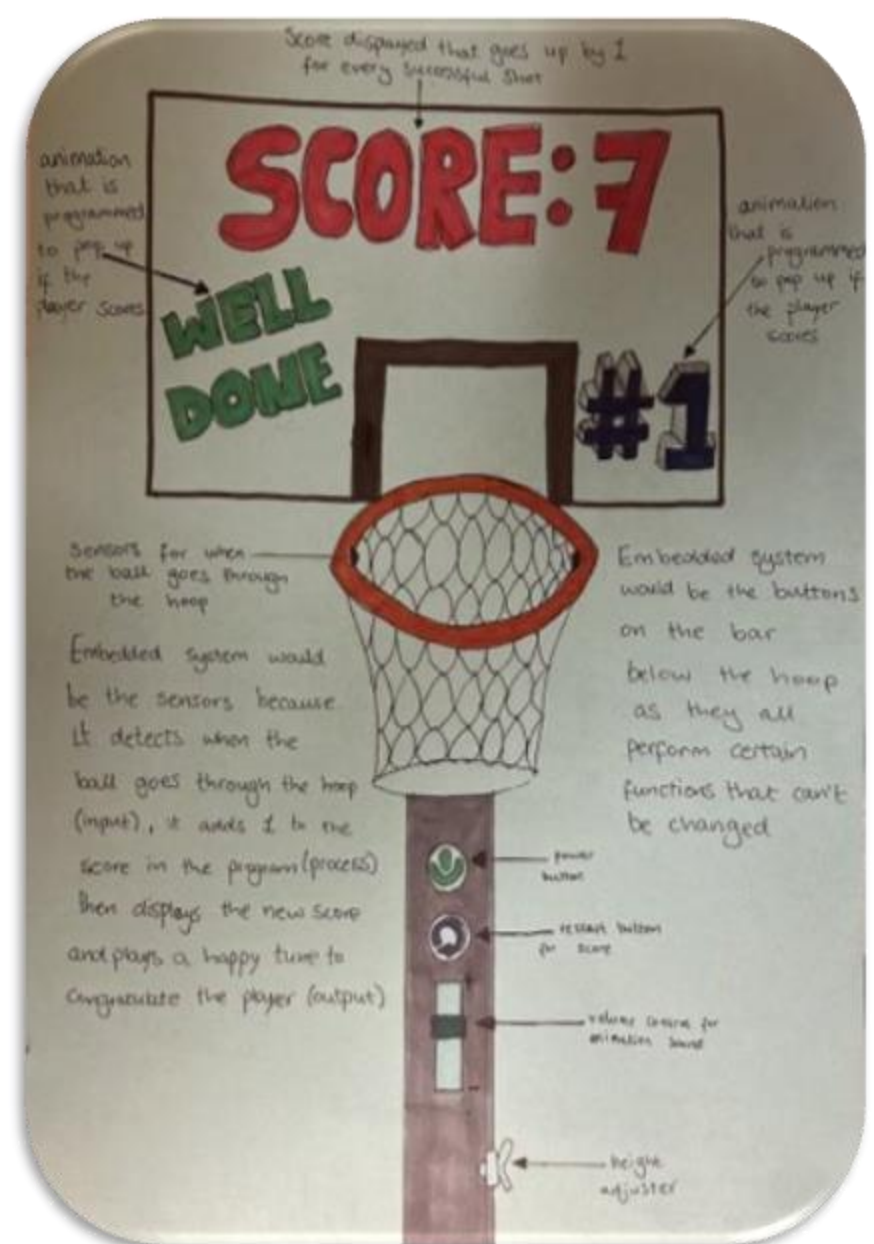 Score displayed that goes up by 1
for every successful shot
SCORE:7
animation
that is
programmed
to pop up
if the
player scores
animation
that is
programmed
to pop up if
the player
scores
WELL
DONE
#1
Sensors for when
the ball goes through
the hoop
Embedded system would
be the sensors because
it detects when the
ball goes through the hoop
(input), it adds 1 to the
score in the program (process)
then displays the new score
and plays a happy tune to
congratulate the player (output)
Embedded system
would be the buttons
on the bar
below the hoop
as they all
perform certain
functions that can't
be changed
power
button
restart button
for score
volume control for
animation sound
height
adjuster